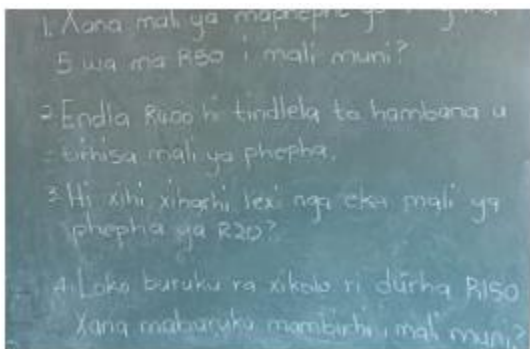 1. Xana mali ya maphepha ya
5 wa ma R50 i mali muni?
2. Endla R400 hi tindlela to hambana u
tirhisa mali ya phepha.
3. Hi xihi xiharhi lexi nga eka mali ya
phepha ya R20?
4. Loko buruku ra xikolo ri durha R150
Xana maburuku mambirhi i mali muni?